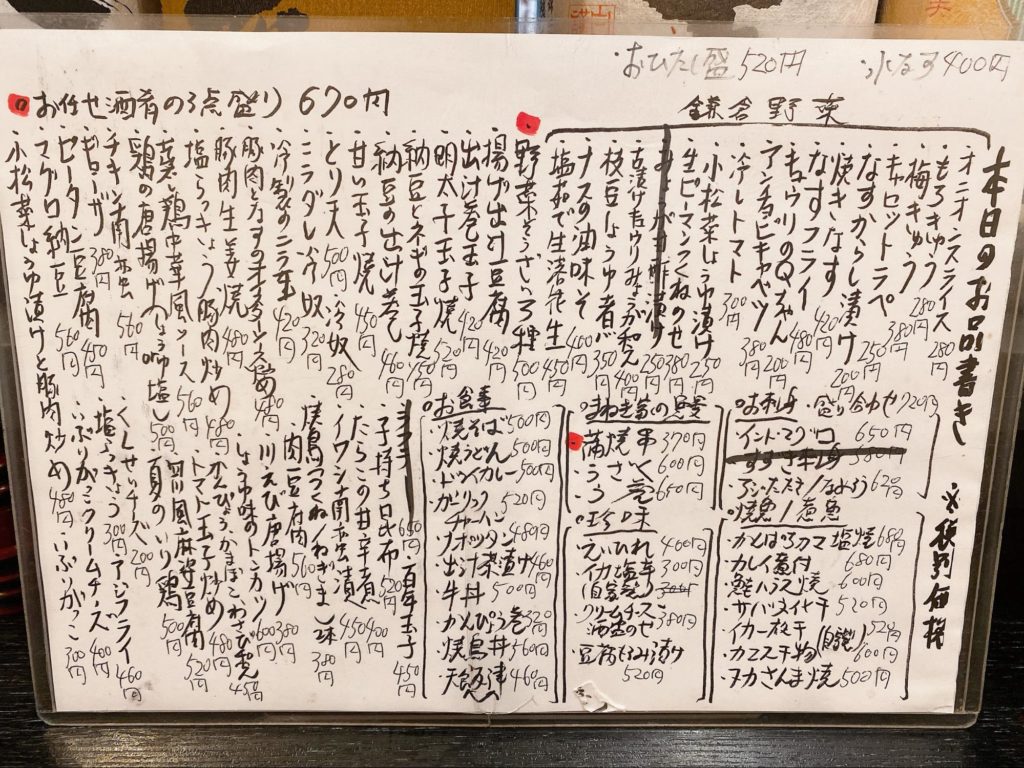 おひたし盛 520円
水なす 400円
本日のお品書き
※税別価格
鎌倉野菜
・オニオンスライス 280円
・もろきゅう 280円
・梅きゅう 380円
・キャロットラペ 380円
・なすからし漬け 250円
・焼きなす 420円
・なすフライ 480円
・キュウリのQちゃん 200円
・アンチョビキャベツ 380円
・冷しトマト 300円
・小松菜しょうゆ漬け 250円
・生ピーマンつくねのせ 380円
・枝豆しょうゆ煮 350円
・ナスの油味そ 400円
・塩ゆで生落花生 450円
・野菜そうざい3種 500円
・揚げ出し豆腐 420円
・出し巻玉子 420円
・明太子玉子焼 520円
・納豆とネギの玉子焼 450円
・納豆の出し巻 460円
・甘い玉子焼 450円
・とり天 500円
・冷奴 280円
・ニラダレ冷奴 320円
・冷製のニラ玉 420円
・豚肉となすのオイスターソース炒め
・豚肉生姜焼 480円
・塩らっきょう豚肉炒め 480円
・蒸し鶏中華風ソース 560円
・鶏の唐揚げ 500円
・チキン南蛮 560円
・ギョーザ 380円
・ピータン豆腐 450円
・マグロ納豆 560円
・小松菜しょうゆ漬けと豚肉炒め 480円
お任せ酒肴の3点盛り 670円
お刺身
・盛り合わせ 720円
・インドマグロ 650円
・アジたたき/なめろう 620円
焼魚/煮魚
・カレイ煮付 680円
・鮭ハラス焼 600円
・サバメイセキ 520円
・イカ一枚干(自家製) 520円
・カマス干物 600円
・ヌカさんま焼 500円
・蒲焼串 370円
・うざく 600円
・う巻 650円
珍味
・えいひれ 400円
・イカ塩辛(自家製) 300円
・クリームチーズ酒盗のせ 380円
・豆腐もろみ漬け 520円
お食事
・焼そば 500円
・焼うどん 500円
・ドライカレー 500円
・ガーリックチャーハン 520円
・ナポリタン 480円
・出汁茶漬け 460円
・牛丼 500円
・かんぴょう巻 320円
・焼鳥丼 560円
・百年玉子 450円
・子持ち昆布 520円
・たらこの甘辛煮 400円
・イワシ南蛮漬 450円
・肉豆腐 560円
・川えび唐揚げ 380円
・しょうゆ味のトンカツ 600円
・かまぼこわさび和え 450円
・トマト玉子炒め 480円
・四川風麻婆豆腐 520円
・夏のいり鶏 500円
・くんせいチーズ 200円
・アジフライ 460円
・塩らっきょう 300円
・いぶりがっこクリームチーズ 400円
・いぶりがっこ 300円